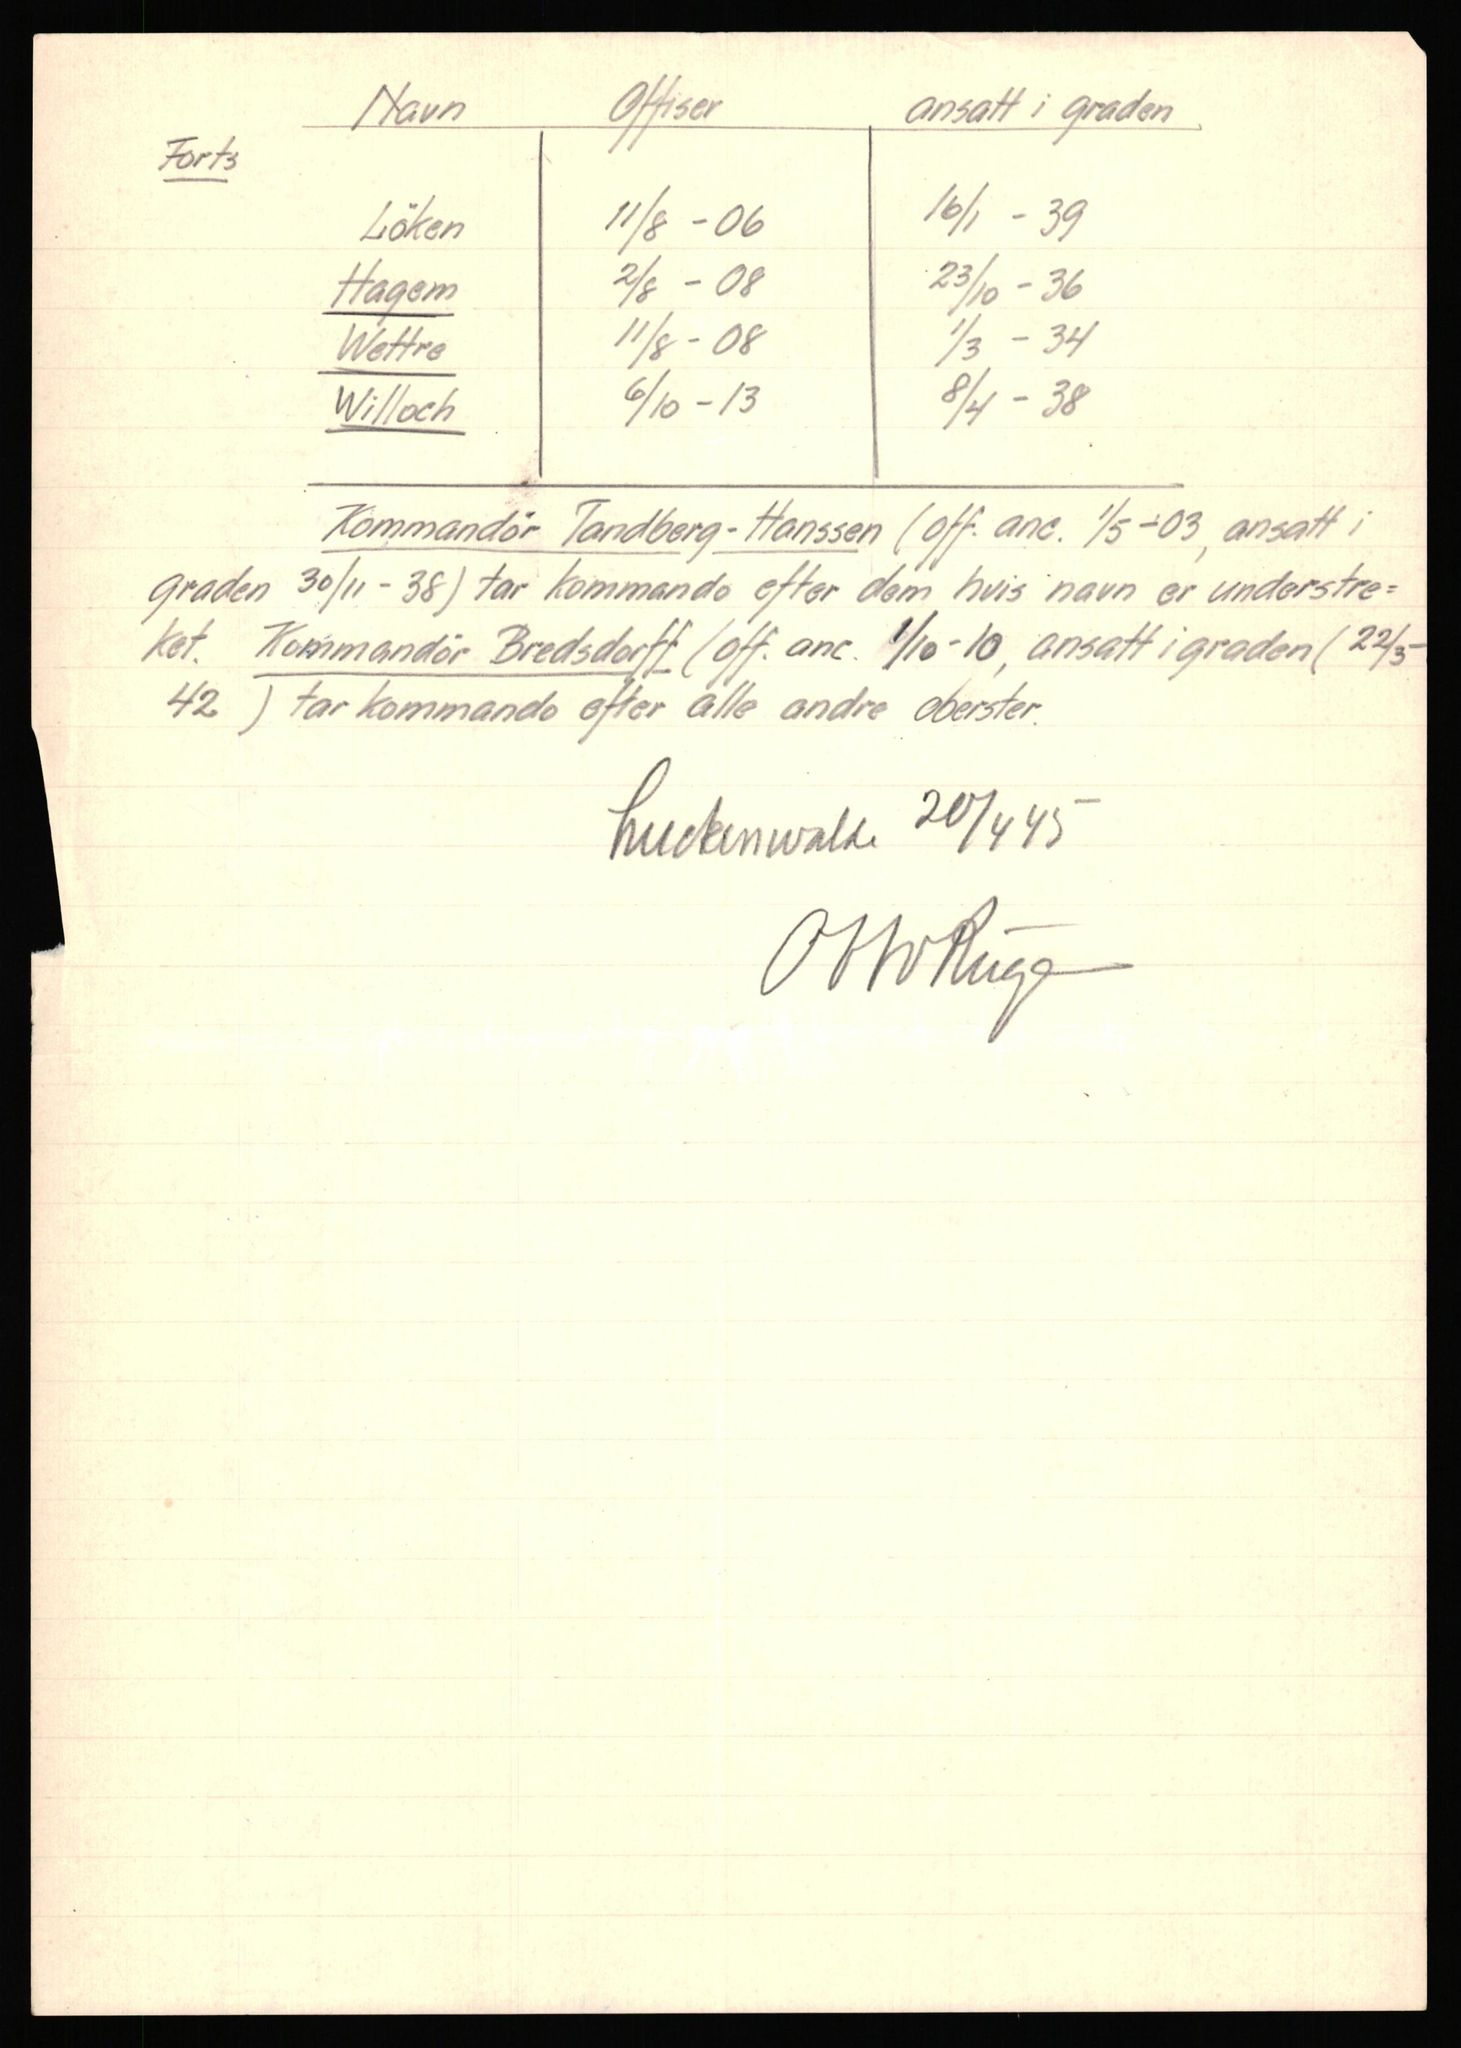 Navn Offiser ansatt i graden
Forts
Löken 11/8 - 06 16/1 - 39
Hagem 2/8 - 08 23/10 - 36
Wettre 11/8 - 08 1/3 - 34
Willoch 6/10 - 13 8/4 - 38
Kommandör Tandberg-Hanssen (off. anc. 1/5 - 03, ansatt i
graden 30/11 - 38) tar kommando efter dem hvis navn er understre=
ket. Kommandör Bredsdorff (off. anc. 1/10 - 10, ansatt i graden (22/3-
42 ) tar kommando efter alle andre oberster.
Luckenwalde 20/4 45
Otto Ruge